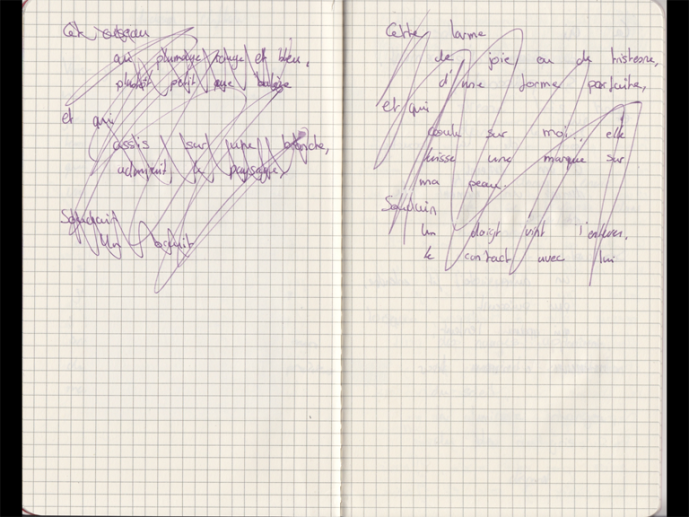 Cet oiseau
au plumage rouge et bleu,
plutôt petit que balèze
et qui
assis sur une branche,
admirait le paysage.
Soudain
Un bruit
Cette larme
de joie ou de tristesse,
d'une forme parfaite,
et qui
coule sur moi, elle
laisse une marque sur
ma peau.
Soudain
Un doigt vint l'enlever,
le contact avec lui